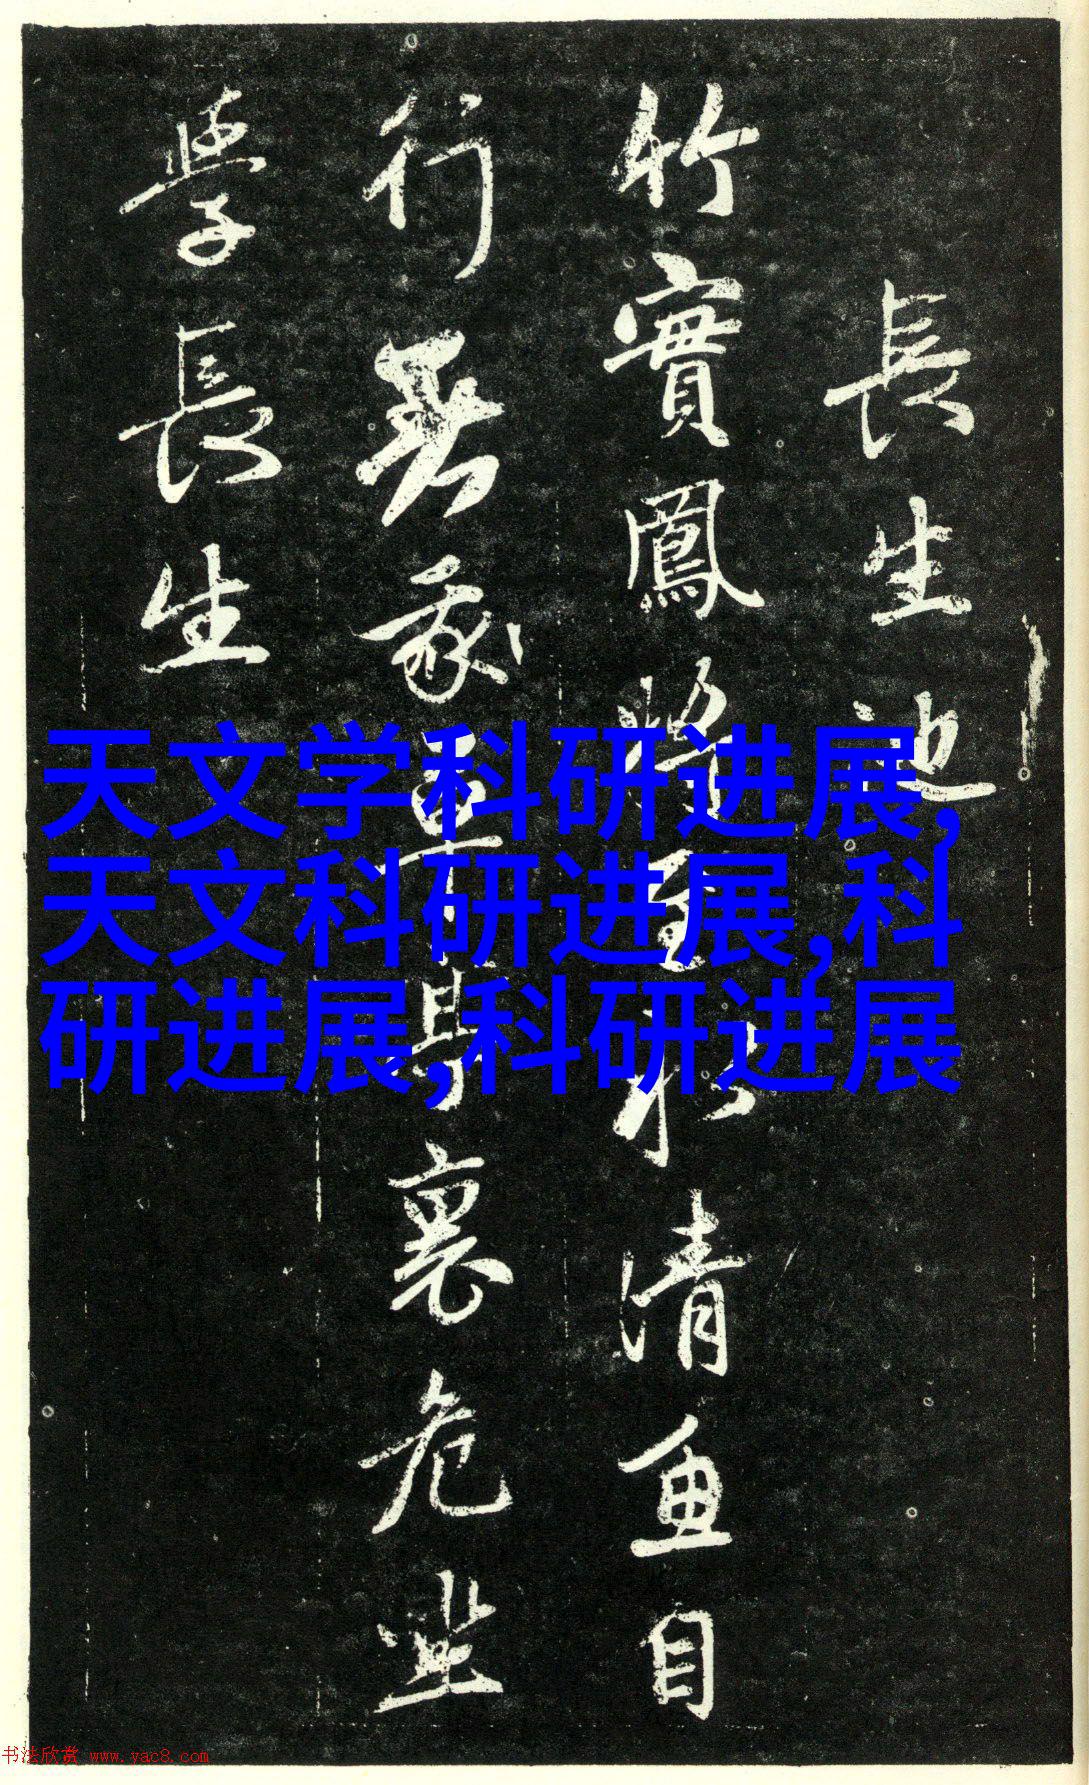 長生池
竹實鳳將至水清魚自
行若家畢學裏危坐
學長生
天文学科研进展,
天文科研进展,科
研进展,科研进展
书法欣赏 www.yac8.com